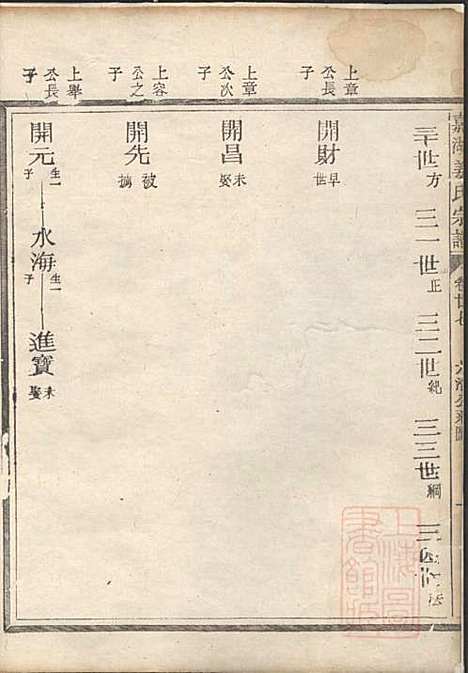 嘉湖姜氏宗譜
卷廿七
三十世方 三一世正 三二世紀 三三世綱
上章公長子
開財早世
上章公次子
開昌未娶
上容公之子
開先被擄
上舉公長子
開元生一子 水海生一子 進寶未娶
上海圖書館藏